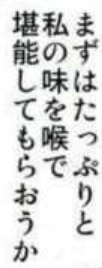 まずはたっぷりと
私の味を喉で
堪能してもらおうか